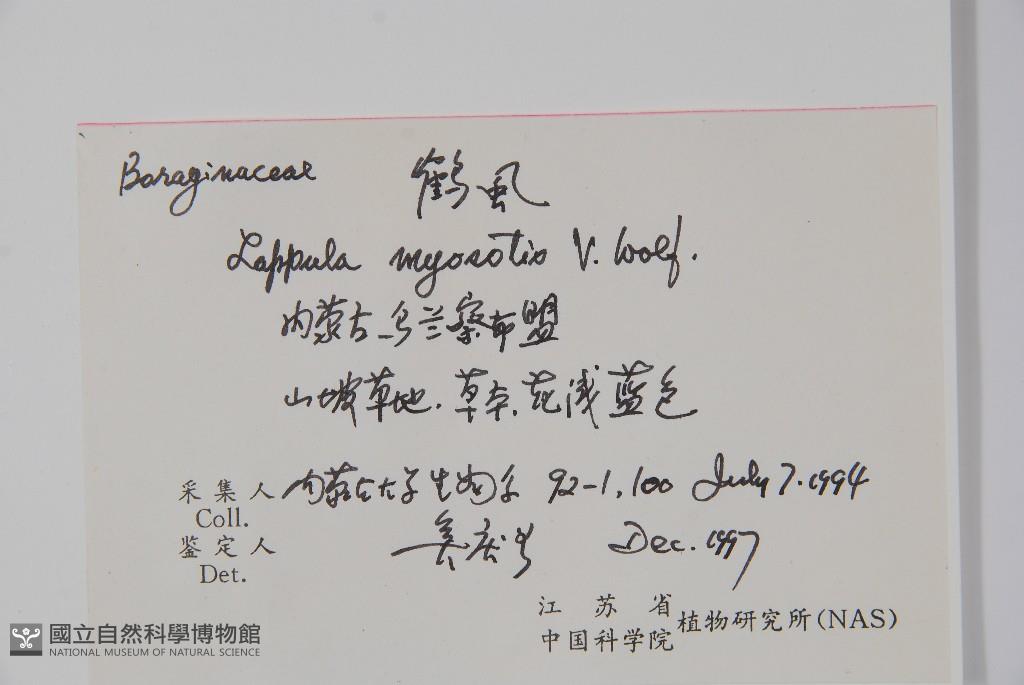 Boraginaceae 鹤虱
Lappula myosotis V. Wolf.
内蒙古乌兰察布盟
山坡草地.草本,花浅蓝色
采集人 内蒙古大学生物系 92-1,100 July 7.1994
Coll.
鉴定人 Dec. 1997
Det.
江苏省
中国科学院 植物研究所(NAS)
國立自然科學博物館
NATIONAL MUSEUM OF NATURAL SCIENCE